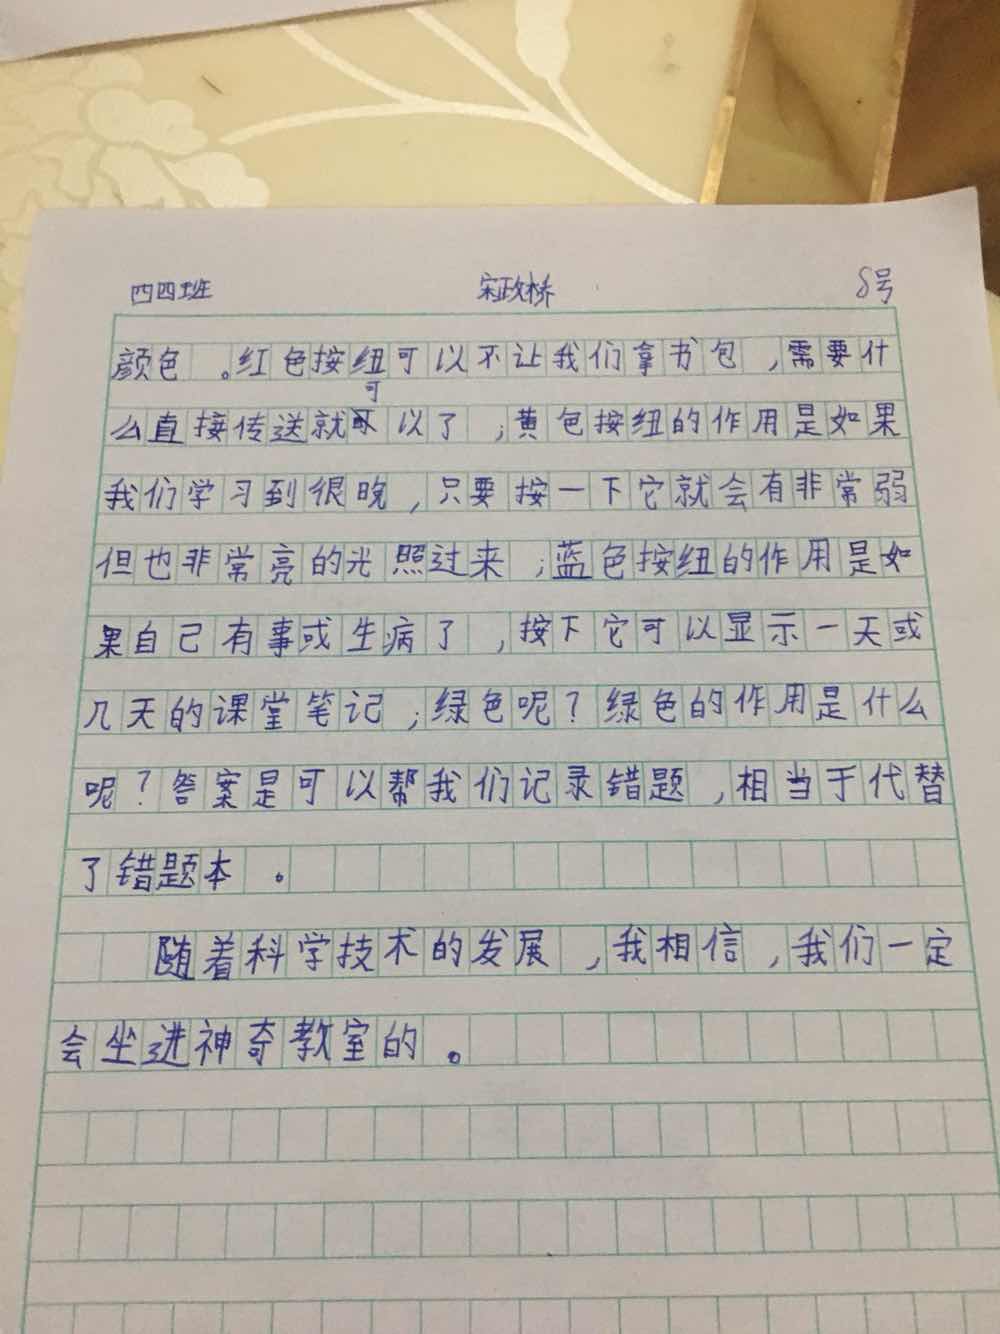 四四班 宋政桥 8号
颜色。红色按纽可以不让我们拿书包,需要什
么直接传送就可以了;黄色按纽的作用是如果
我们学习到很晚,只要按一下它就会有非常弱
但也非常亮的光照过来;蓝色按纽的作用是如
果自己有事或生病了,按下它可以显示一天或
几天的课堂笔记;绿色呢?绿色的作用是什么
呢?答案是可以帮我们记录错题,相当于代替
了错题本。
随着科学技术的发展,我相信,我们一定
会坐进神奇教室的。